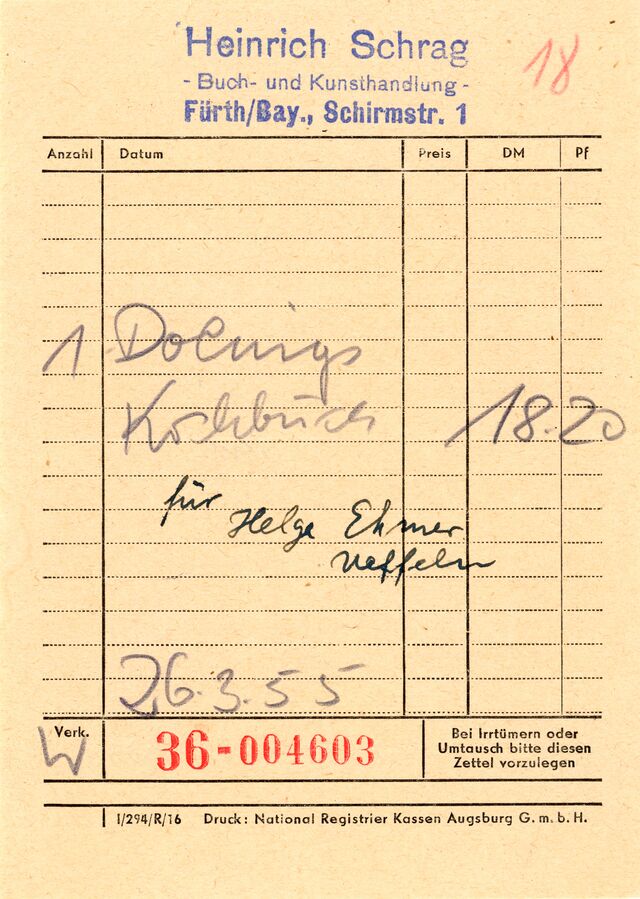 Heinrich Schrag
- Buch- und Kunsthandlung -
Fürth/Bay., Schirmstr. 1
18
Anzahl Datum Preis DM Pf
1
Kochbuch 18.20
für
Helga Ehmer
26.3.55
Verk.
W
36-004603
Bei Irrtümern oder
Umtausch bitte diesen
Zettel vorzulegen
I/294/R/16 Druck: National Registrier Kassen Augsburg G. m. b. H.